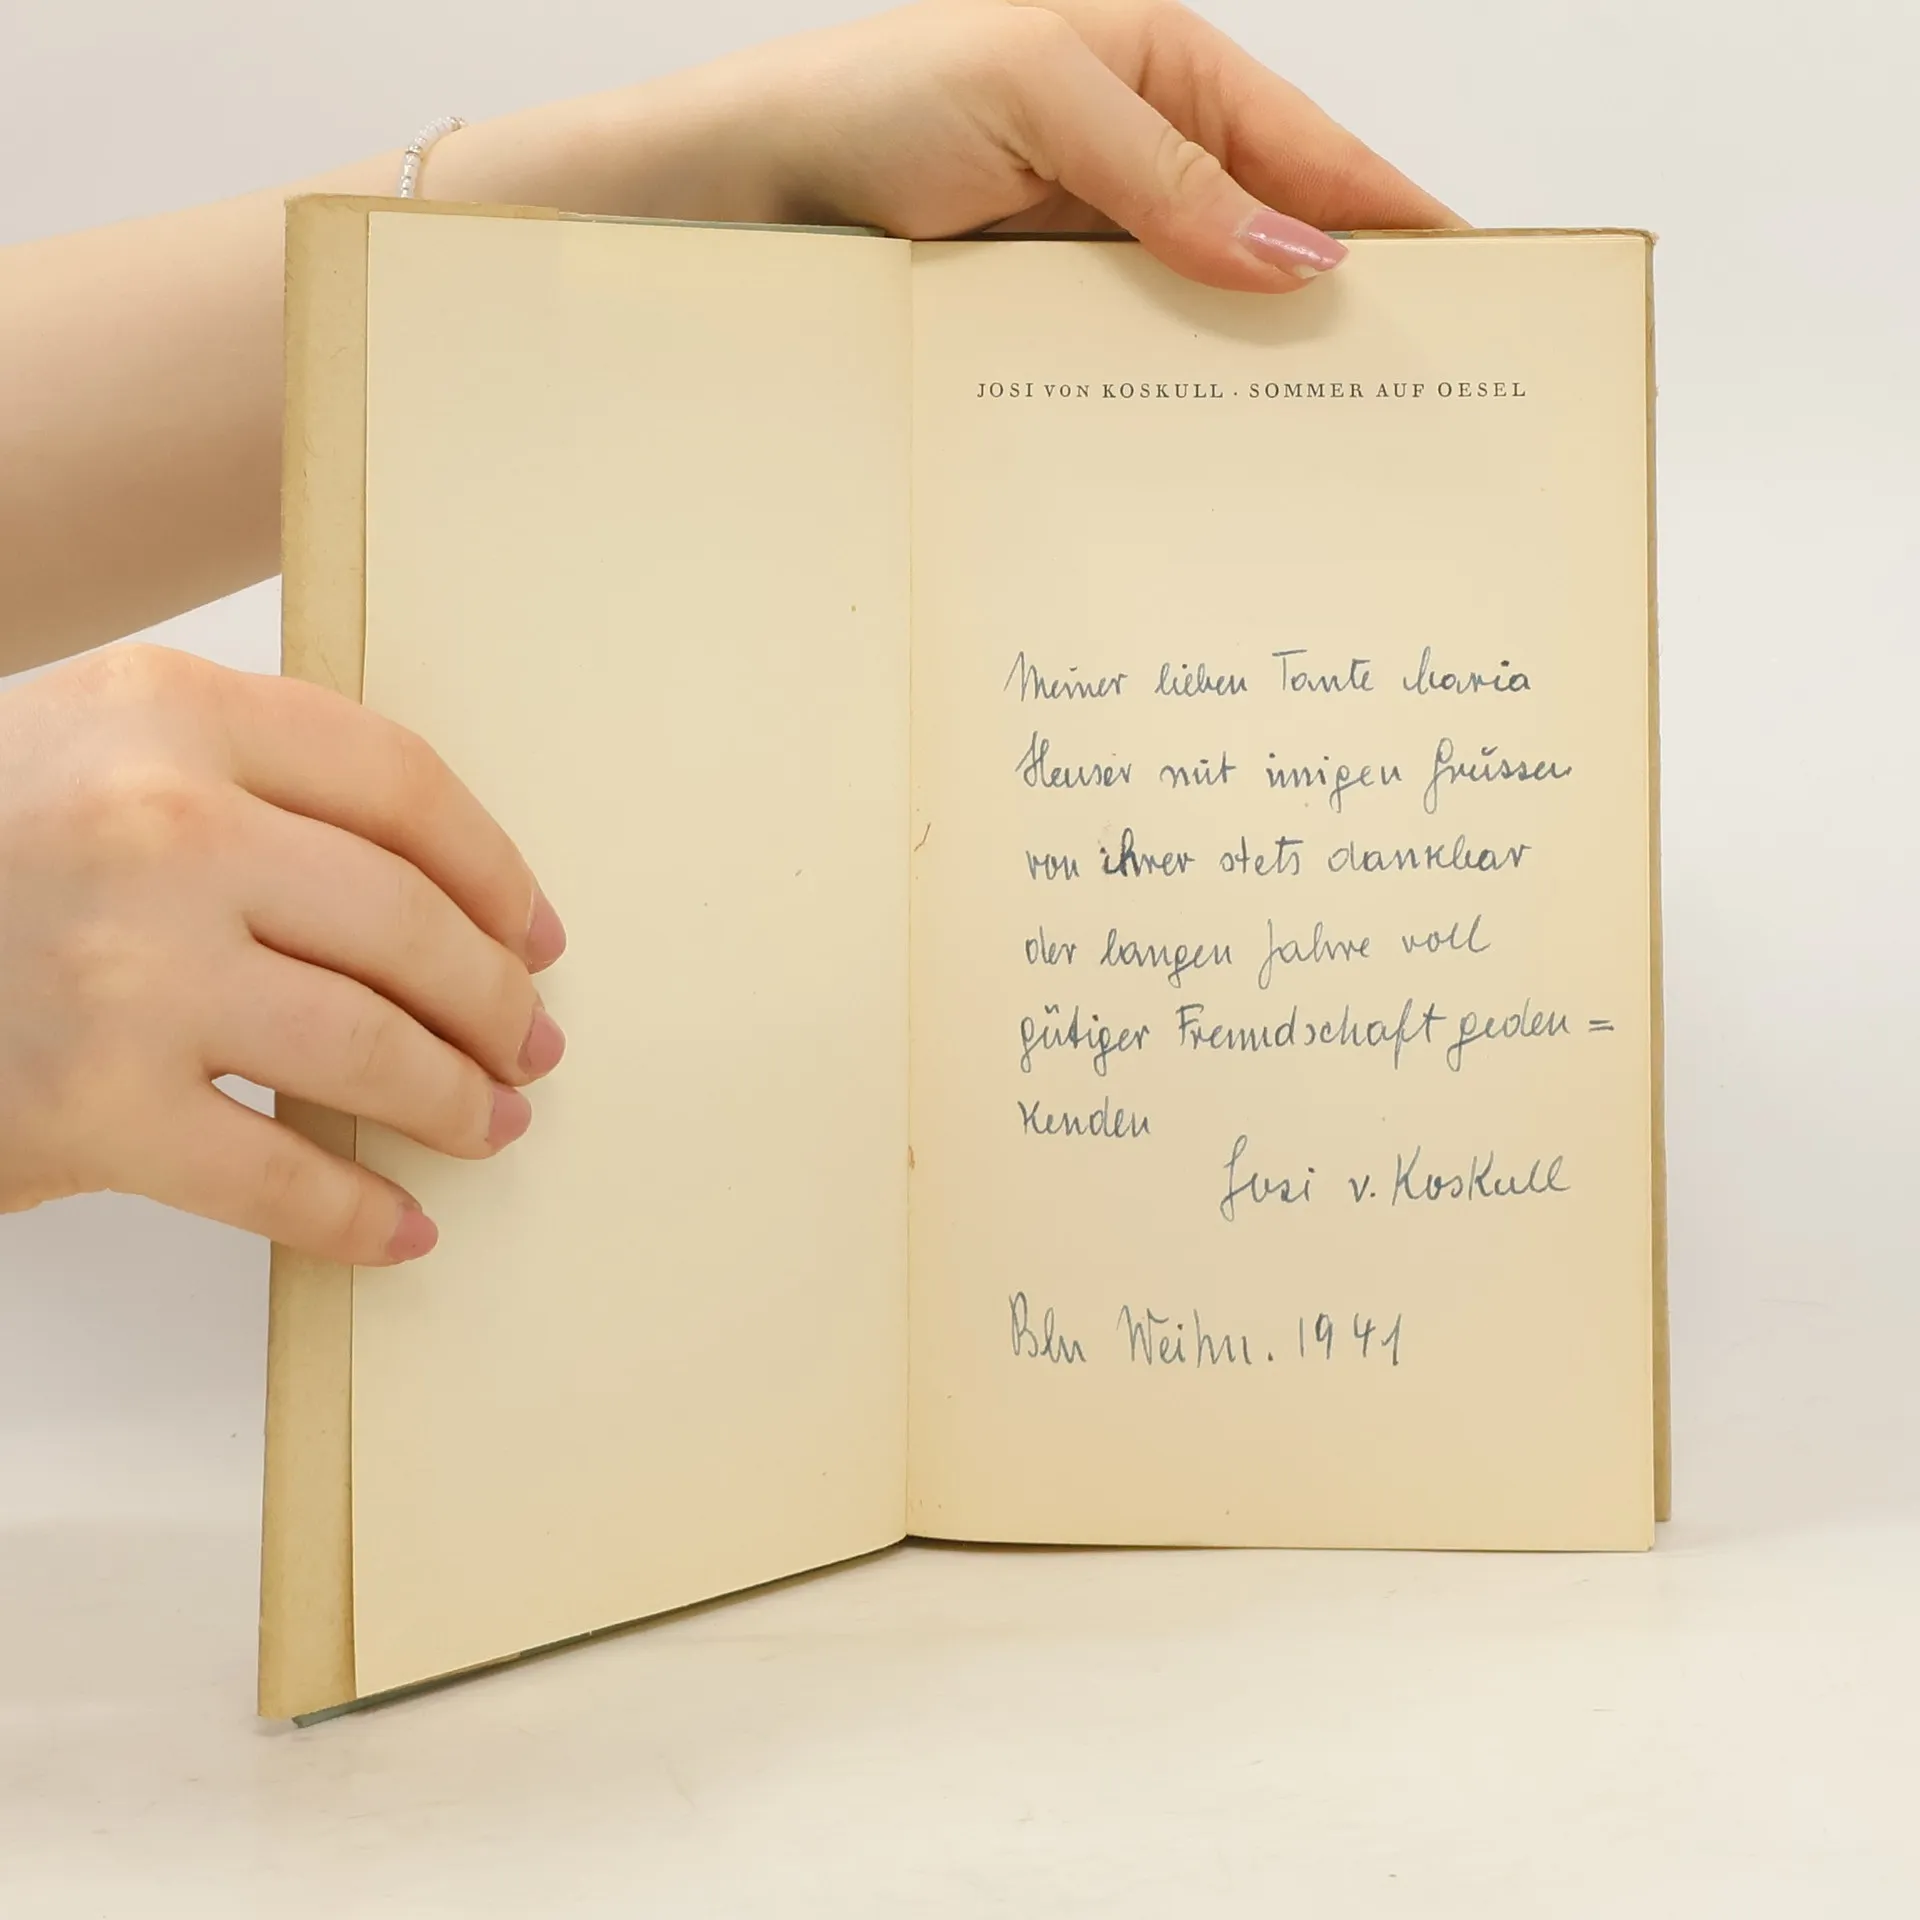 JOSI VON KOSKULL · SOMMER AUF OESEL
Meiner lieben Tante Maria
Heuser mit innigen Grüssen
von ihrer stets dankbar
der langen Jahre voll
gütiger Freundschaft geden =
kenden
Josi v. Koskull
Bln Weihn. 1941